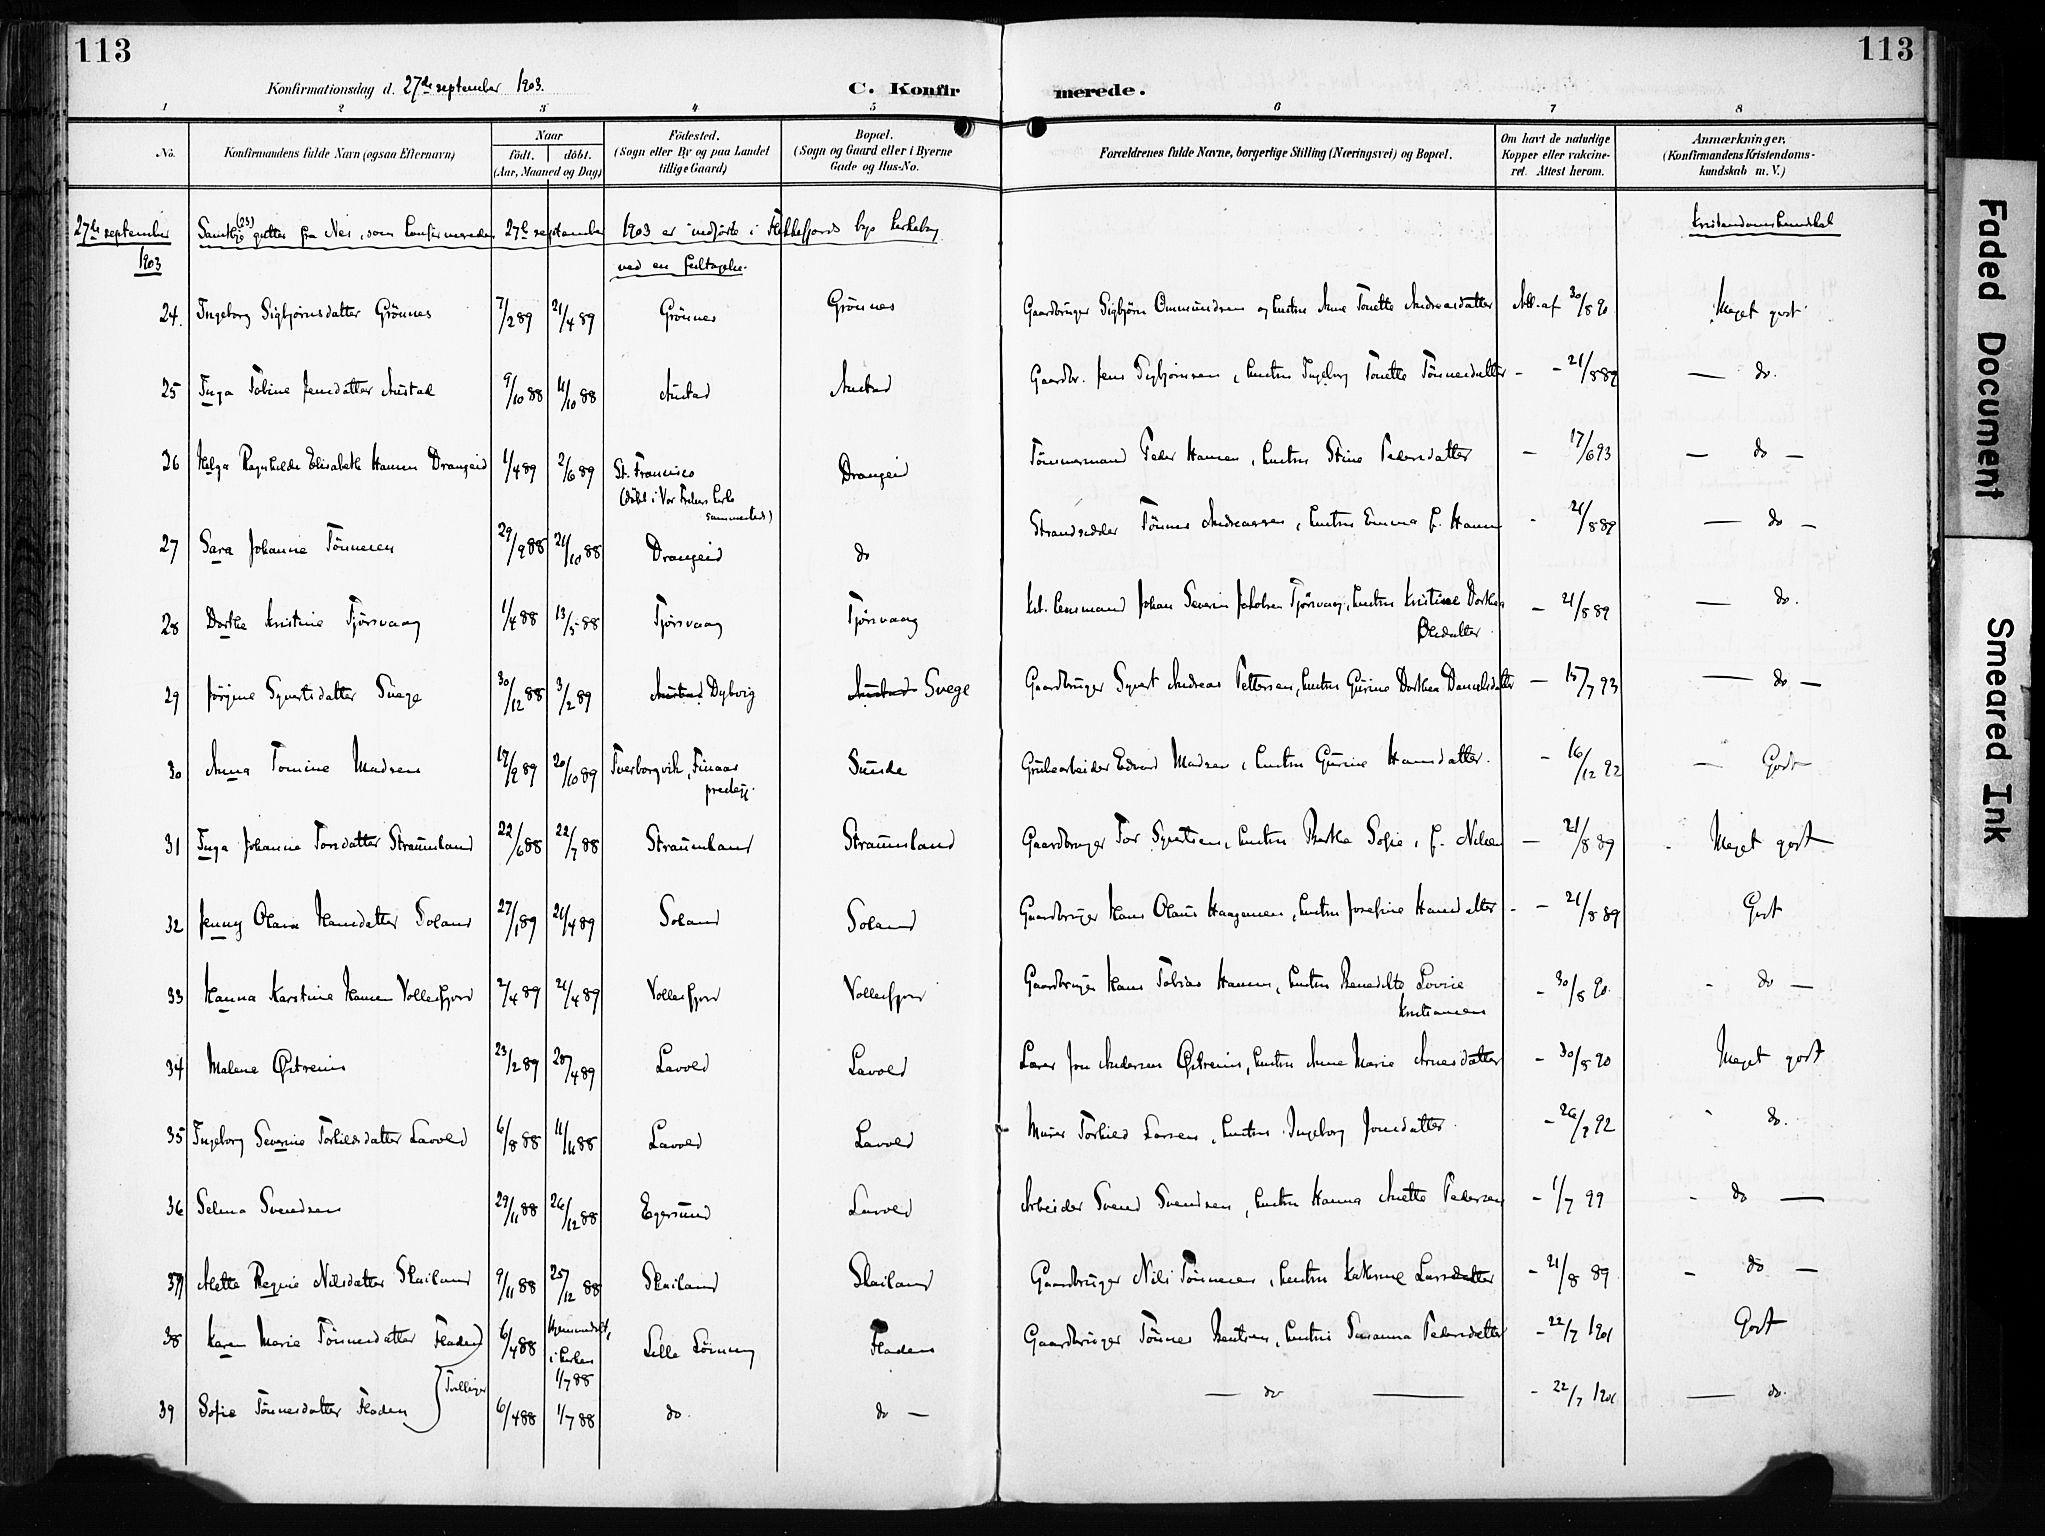 113
113
Konfirmationsdag d. 27de september 1903.
C. Konfir
merede.
1 2 3 4 5 6 7 8
No. Konfirmandens fulde Navn (ogsaa Efternavn) Naar födt. döbt. (Aar, Maaned og Dag)
Födested. (Sogn eller By og paa Landet tillige Gaard)
Bopæl. (Sogn og Gaard eller i Byerne Gade og Hus-No.
Forældrenes fulde Navne, borgerlige Stilling (Næringsvei) og Bopæl.
Om havt de naturlige Kopper eller vakcineret. Attest herom.
Anmærkninger, (Konfirmandens Kristendomskundskab m. V.)
27de september 1903
Samtlige (23) gutter fra Nes, som konfirmeredes 27de september 1903 er indførte i Flekkefjords bys kirkebog
ved en feiltagelse.
Kristendomskundskab
24. Ingeborg Sigbjørnsdatter Grönnes 7/2 89 21/4 89 Grönnes Grönnes Gaardbruger Sigbjørn Ommundsen og hustru Anne Tonette Andreasdatter Att. af 30/8 90 Meget godt
25 Inga Tobine Jensdatter Austad 9/10 88 11/10 88 Austad Austad Gaardbr. Jens Sigbjørnsen, hustru Ingeborg Tonette Tönnesdatter - - 21/8 89 — do.
26 Helga Ragnhilda Elisabeth Hansen Drangeid 1/4 89 2/6 89 St. Francisco Drangeid Tömmermand Peder Hansen, hustru Stine Pedersdatter — 17/6 93 — do —
(döbt i Vor Frelsers kirke sammesteds)
27 Sara Johanne Tönnesen 29/9 88 21/10 88 Drangeid do Strandsidder Tönnes Andreassen, hustru Emma f. Hansen - 21/8 89 — do —
28 Dorthe Kristine Tjörsvaag 1/4 88 13/5 88 Tjörsvaag Tjörsvaag kst. lensmand Johan Severin Jakobsen Tjörsvaag, hustru Kristine Dorthea Olsdatter — 21/8 89 — do.
29 Jörgine Syvertsdatter Svege 30/12 88 3/2 89 Austad Dybvig Austad Svege Gaardbruger Syvert Andreas Pettersen, hustru Gurine Dorthea Danielsdatter — 15/7 93 — do —
30 Anna Tomine Madsen 19/9 89 20/10 89 Tverborgvik, Finaas prestegj. Sunde Grubearbeider Edvard Madsen, hustru Gurine Hansdatter. - 16/12 92 — Godt
31 Inga Johanne Torsdatter Straumland 22/6 88 22/7 88 Straumland Straumland Gaardbruger Tor Syvertsen, hustru Berthe Sofie, f. Nilsen — 21/8 89 - Meget godt
32 Jenny Olava Hansdatter Soland 27/1 89 21/4 89 Soland Soland Gaardbruger Hans Olaus Haagensen, hustru Josefine Hansdatter - — 21/8 89 Godt
33 Hanna Karstine Hansen Vollesfjord 2/4 89 21/4 89 Vollesfjord Vollesfjord Gaardbruger Hans Tobias Hansen, hustru Benedikte Lovise Kristiansen - 30/8 90. - do —
34 Malene Østreim 23/2 89 28/4 89 Lavold Lavold Lærer Jon Andersen Østreim, hustru Anne Marie Arnesdatter - 30/8 90 Meget godt
35 Ingeborg Severine Torkildsdatter Lavold 6/8 88 11/11 88 Lavold Lavold Murer Torkild Larsen, hustru Ingeborg Jonsdatter - 26/7 92 - do.
36 Selma Svendsen 29/11 88 26/12 88 Egersund Lavold Arbeider Svend Svendsen, hustru Hanna Anette Pedersen - 1/7 99 - do —
37 Mette Regine Nilsdatter Skailand 9/11 88 25/12 88 Skailand Skailand Gaardbruger Nils Tönnesen, hustru Katrine Larsdatter - 21/8 89 - do —
38 Karen Marie Tönnesdatter Fladen 6/4 88 Hjemmedöbt, i kirken 1/7 88 Lille Löining Fladen Gaardbruger Tönnes Berntsen, hustru Susanna Pedersdatter - 22/7 1901 Godt
Tvillinger
39 Sofie Tönnesdatter Fladen 6/4 88 1/7 88 do. do — — do — - 22/7 1901 — do.
Faded Document
Smeared Ink